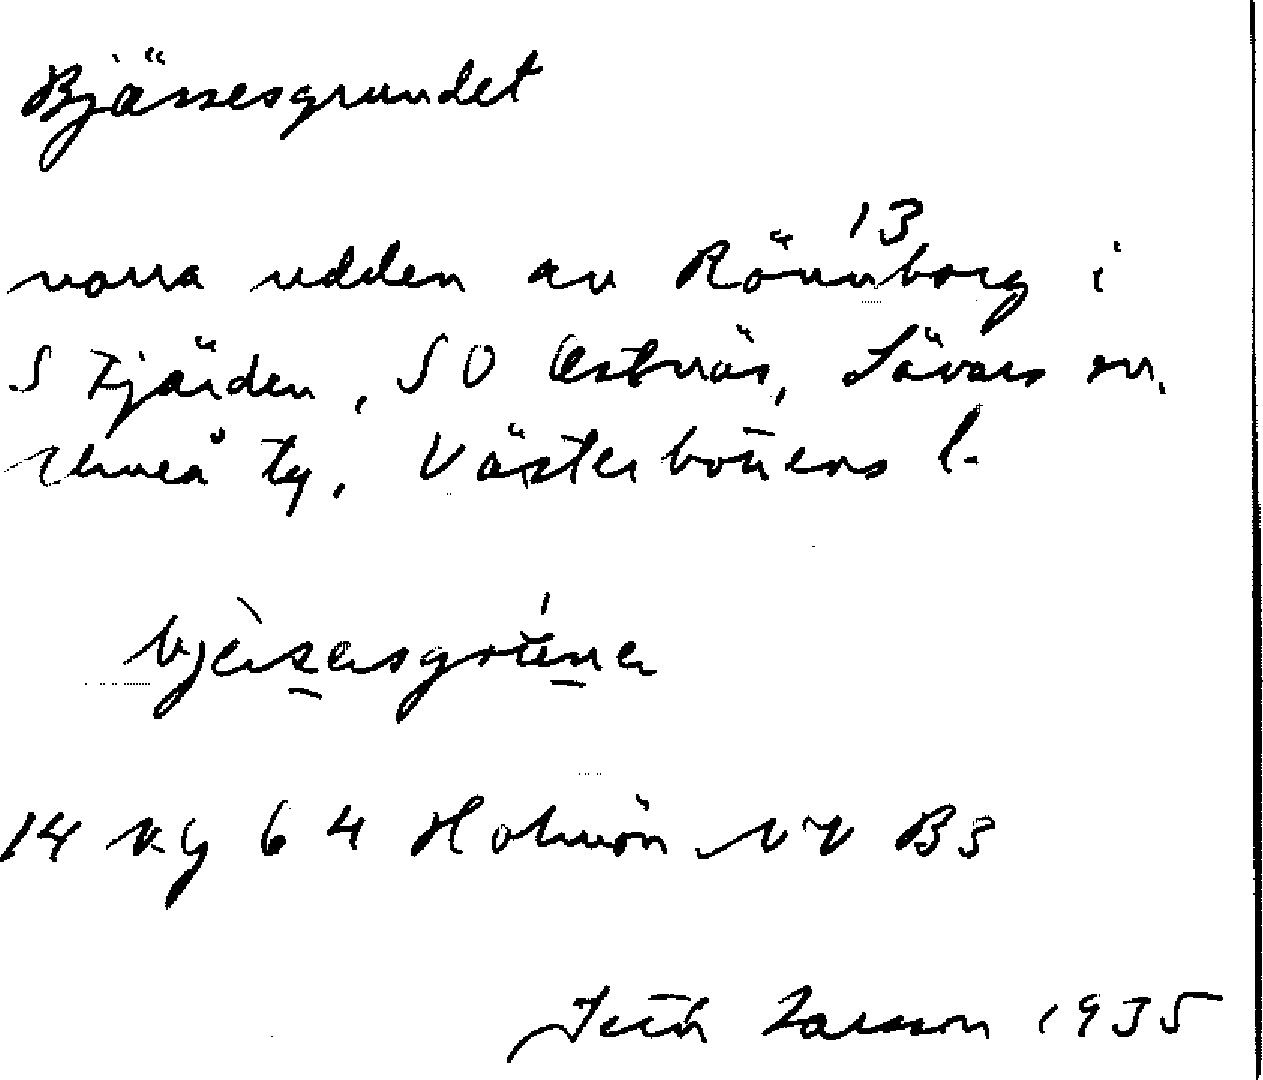 Bjässesgrundet
13
norra udden av Rönnborg i
S Fjärden, SO Östnäs, Sävars sn,
Umeå tg, Västerbottens l.
14 Kg 64 Holmön NV B3
Larsson 1935